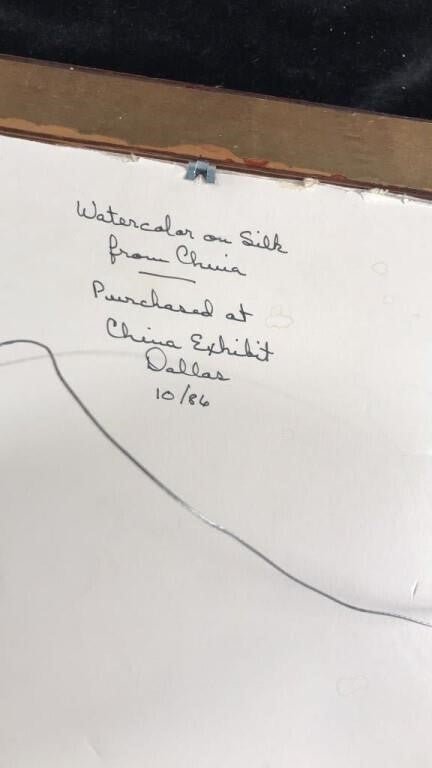 Watercolor on Silk
from China
Purchased at
China Exhibit
Dallas
10/86